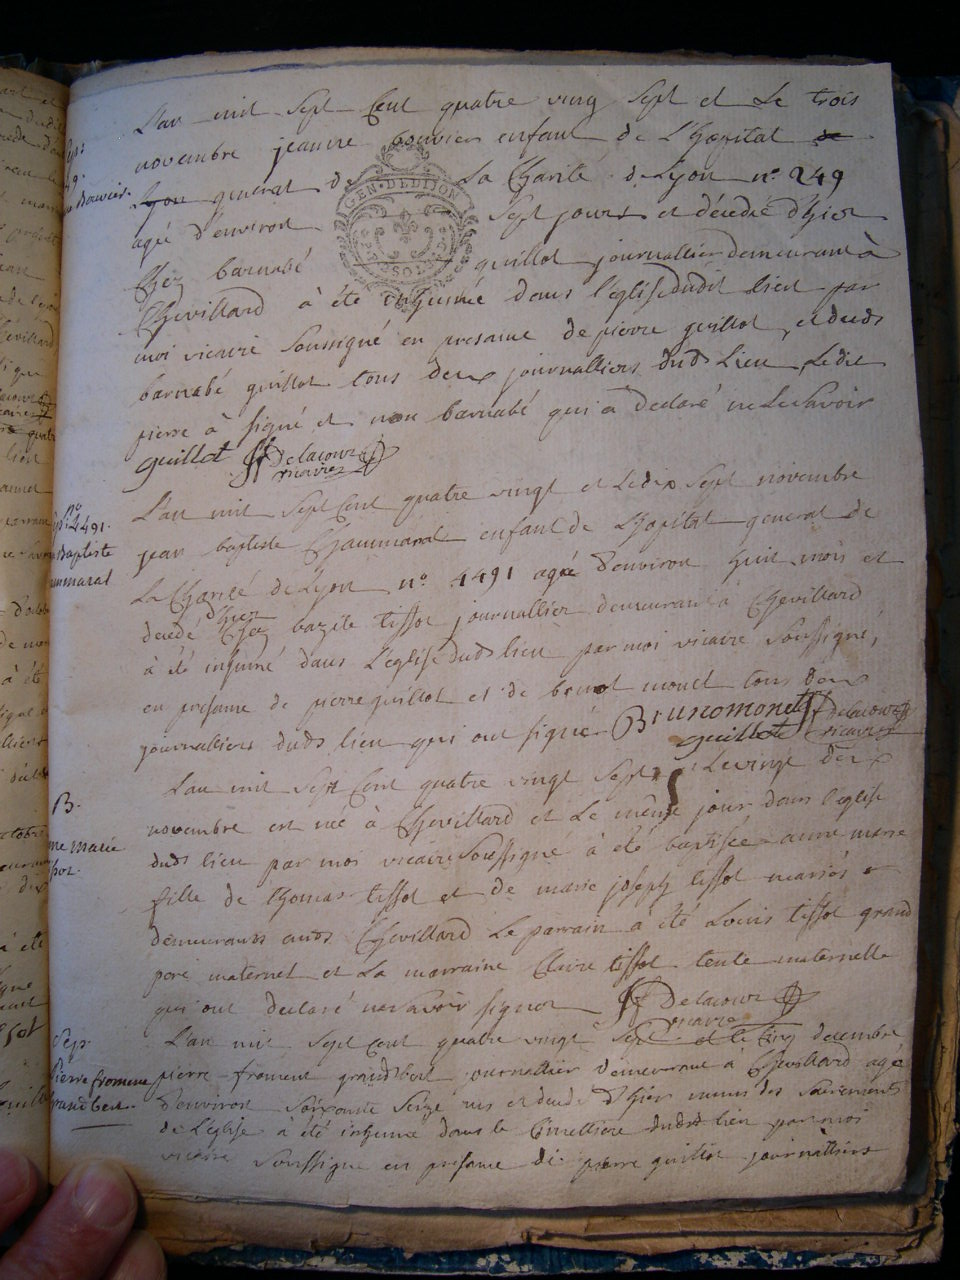 L'an mil sept Cent quatre ving sept et Le trois
novembre jeanne bouvier enfant de L'hopital de
Lyon general de La Charité de Lyon n° 249
agé d'environ sept jours et décédé d'hier
Chez barnabé guillot journallier demeurant à
Chevillard à été inhumée dans l'église dudit lieu par
moi vicaire soussigné en presance de pierre guillot, et dud
barnabé guillot tous deux journalliers dud Lieu, Ledit
pierre à signé et non barnabé qui à déclaré ne Le savoir
guillot Delacour
vicaire
GEN. DE DIJON
L'an mil sept Cent quatre vingt et Le dix sept novembre
jean baptiste Chaumaral enfant de L'hopital general de
La Charité de Lyon n° 4491 agé d'environ huit mois et
d'hier
decedé Chez bazile tissot journallier demeurant à Chevillard
à été inhumé dans L'église dud lieu par moi vicaire soussigné,
en presance de pierre guillot et de bruno monet tous deux
journalliers dud lieu qui ont signé Brunomonet Delacour
guillot vicaire
L'an mil sept Cent quatre vingt sept Le vingt deux
novembre est née à Chevillard et Le même jour dans l'eglise
dud lieu par moi vicaire soussigné à été baptisée anne marie
fille de thomas tissot et de marie joseph tissot mariés et
demeurants aud Chevillard Le parrain à été Louis tissot grand
pere maternel et La marraine Claire tissot tente maternelle
qui ont declaré ne savoir signer Delacour
vicaire
L'an mil sept cent quatre vingt sept et le cinq decembre
pierre froment grandbert journallier demeurant à Chevillard agé
d'environ soixante seize ans et decedé d'hier munis des sacrements
de L'eglise a été inhumé dans le Cimetiere dudit lieu par moi
vicaire soussigné en presance de pierre guillot journalliers
n°
4491.
Baptiste
B.
ne Marie
Sep.
Pierre froment
grandbert.